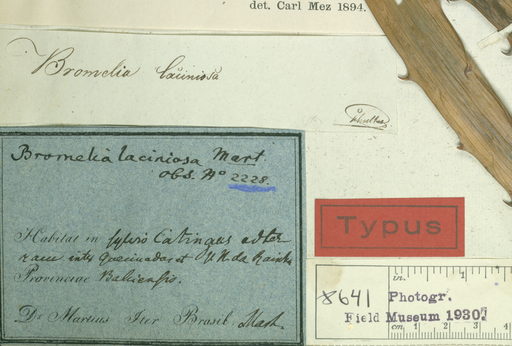 det. Carl Mez 1894.
Bromelia laciniosa
Schultes
Bromelia laciniosa Mart
obs. No 2228.
Habitat in sylvis Catingas ad ter-
ram inter Queimadas et
Provinciae Bahiensis.
Dr Martius Iter Brasil. Mart.
Typus
in. 1
8641 Photogr.
Field Museum 1930
cm 1 2 3 4